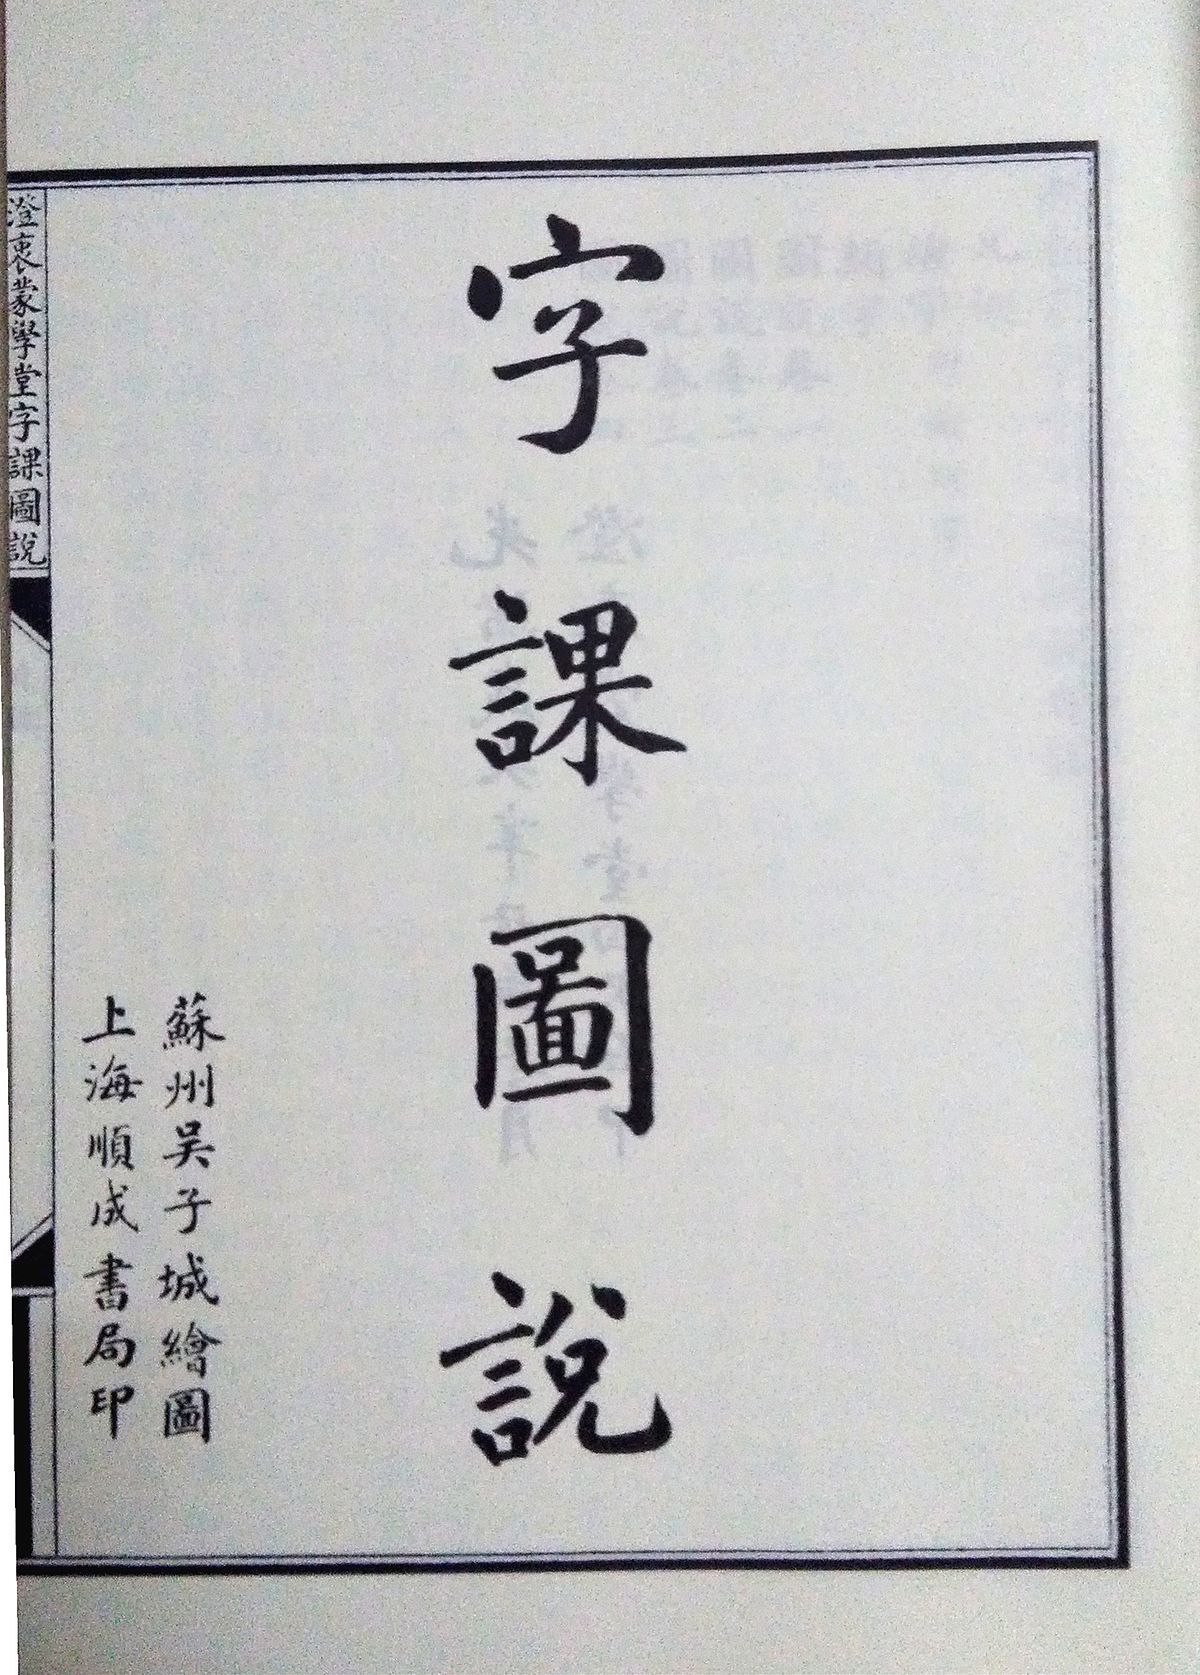 字課圖說
蘇州吴子城繪圖
上海順成書局印
澄衷蒙學堂字課圖說